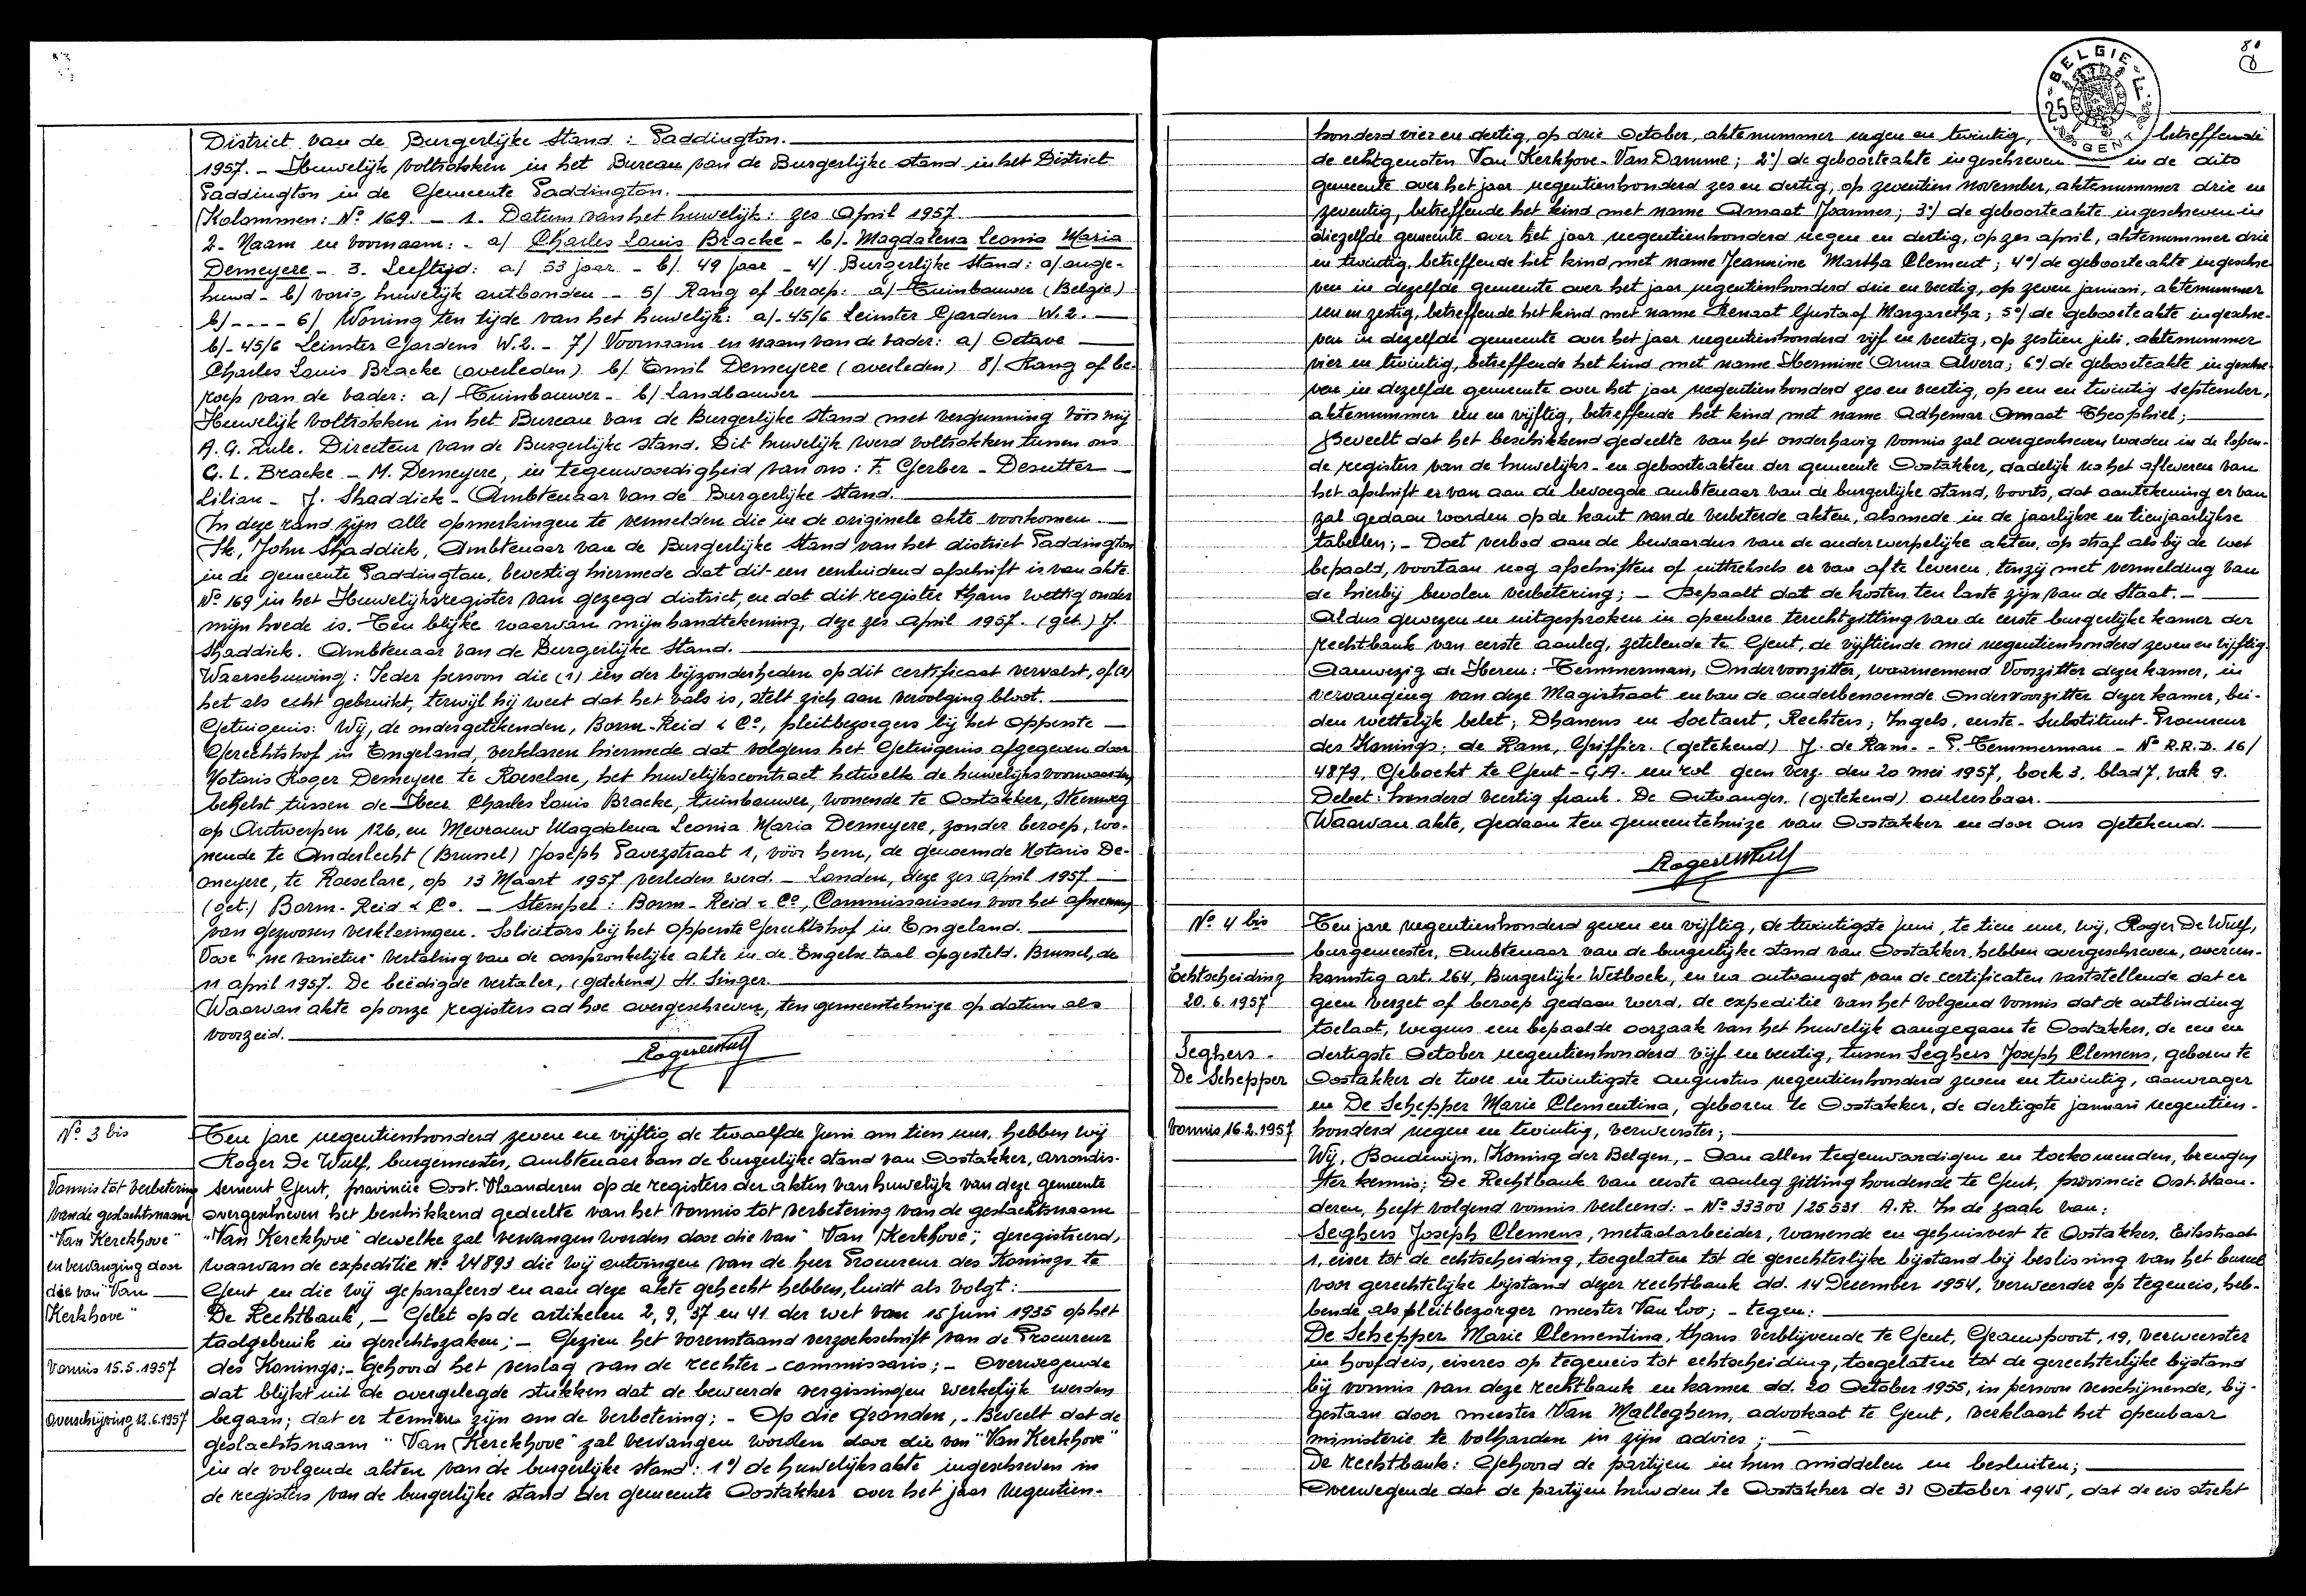 District van de Burgerlijke Stand : Paddington.
1957. - Huwelijk voltrokken in het Bureau van de Burgerlijke stand in het District
Paddington in de Gemeente Paddington.
Kolommen: Nº 169. - 1. Datum van het huwelijk: zes April 1957.
2- Naam en voornaam: - a/ Charles Louis Bracke - b/- Magdalena Leonia Maria
Demeyere - 3. Leeftijd: a/ 53 jaar - b/ 49 jaar - 4/ Burgerlijke stand: a/ onge-
huwd - b/ vorig huwelijk ontbonden - 5/ Rang of beroep: a/ Tuinbouwer (Belgie)
b/ - - - - 6/ Woning ten tijde van het huwelijk: a/- 45/6 Leinster Gardens W.2.
b/- 45/6 Leinster Gardens W.2. - 7/ Voornaam en naam van de vader: a/ Octave
Charles Louis Bracke (overleden) b/ Emil Demeyere (overleden) 8/ Rang of be-
roep van de vader: a/ Tuinbouwer - b/ Landbouwer
Huwelijk voltrokken in het Bureau van de Burgerlijke stand met vergunning vóór mij
A. G. Rule. Directeur van de Burgerlijke stand. Dit huwelijk werd voltrokken tussen ons
C. L. Bracke - M. Demeyere, in tegenwoordigheid van ons: F. Gerber - Desutter
Lilian - J. Shaddick - Ambtenaar van de Burgerlijke stand.
In deze rand zijn alle opmerkingen te vermelden die in de originele akte voorkomen.
Ik, John Shaddick, Ambtenaar van de Burgerlijke stand van het district Paddington
in de gemeente Paddington, bevestig hiermede dat dit een eensluidend afschrift is van akte
Nº 169 in het Huwelijksregister van gezegd district, en dat dit register thans wettig onder
mijn hoede is. Ten blijke waarvan mijn handtekening, deze zes April 1957. (get.) J.
Shaddick. Ambtenaar van de Burgerlijke Stand.
Waarschuwing: Ieder persoon die (1) één der bijzonderheden op dit certificaat vervalst, of (2)
het als echt gebruikt, terwijl hij weet dat het vals is, stelt zich aan vervolging bloot.
Getuigenis: Wij, de ondergetekenden, Borm-Reid & Cº, pleitbezorgers bij het Opperste
Gerechtshof in Engeland, verklaren hiermede dat volgens het Getuigenis afgegeven door
Notaris Roger Demeyere te Roeselare, het huwelijkscontract hetwelk de huwelijksvoorwaarden
behelst, tussen de Heer Charles Louis Bracke, tuinbouwer, wonende te Oostakker, Steenweg
op Antwerpen 126, en Mevrouw Magdalena Leonia Maria Demeyere, zonder beroep, wo-
nende te Anderlecht (Brussel) Joseph Pavezstraat 1, vóór hem, de genoemde Notaris De-
meyere, te Roeselare, op 13 Maart 1957 verleden werd. - Londen, deze zes April 1957.
(get.) Borm-Reid & Cº. - Stempel: Borm-Reid & Cº, Commissarissen voor het afnemen
van gezworen verklaringen. Solicitors bij het Opperste Gerechtshof in Engeland.
Voor "ne varietur" vertaling van de oorspronkelijke akte in de Engelse taal opgesteld. Brussel, de
11 april 1957. De beëdigde vertaler, (getekend) H. Singer.
Waarvan akte op onze registers ad hoc overgeschreven, ten gemeentehuize op datum als
voorzeid.
Nº 3 bis
Vonnis tot verbetering
van de geslachtsnaam
"Van Kerckhove"
en vervanging door
die van "Van
Kerkhove"
Vonnis 15.5.1957
Overschrijving 12.6.1957
Ten jare negentienhonderd zeven en vijftig de twaalfde Juni om tien uur, hebben wij
Roger De Wulf, burgemeester, ambtenaar van de burgerlijke stand van Oostakker, arrondis-
sement Gent, provincie Oost-Vlaanderen op de registers der akten van huwelijk van deze gemeente
overgeschreven het beschikkend gedeelte van het vonnis tot verbetering van de geslachtsnaam
"Van Kerckhove" dewelke zal vervangen worden door die van "Van Kerkhove", geregistreerd,
waarvan de expeditie Nº 24893 die wij ontvingen van de heer Procureur des Konings te
Gent en die wij geparafeerd en aan deze akte gehecht hebben, luidt als volgt:
De Rechtbank, - Gelet op de artikelen 2, 9, 37 en 41 der wet van 15 juni 1935 op het
taalgebruik in gerechtszaken; - Gezien het vorenstaand verzoekschrift van de Procureur
des Konings; - Gehoord het verslag van de rechter-commissaris; - Overwegende
dat blijkt uit de overgelegde stukken dat de beweerde vergissingen werkelijk werden
begaan; dat er termen zijn om de verbetering; - Op die gronden, - Beveelt dat de
geslachtsnaam "Van Kerckhove" zal vervangen worden door die van "Van Kerkhove"
in de volgende akten van de burgerlijke stand: 1º/ de huwelijksakte ingeschreven in
de registers van de burgerlijke stand der gemeente Oostakker over het jaar negentien-
80
8
BELGIE
25
GENT
honderd vier en dertig, op drie October, aktenummer negen en twintig, betreffende
de echtgenoten Van Kerkhove-Van Damme; 2º/ de geboorteakte ingeschreven in de dito
gemeente over het jaar negentienhonderd zes en dertig, op zeventien november, aktenummer drie en
zeventig, betreffende het kind met name Amaat Joannes; 3º/ de geboorteakte ingeschreven in
diezelfde gemeente over het jaar negentienhonderd negen en dertig, op zes april, aktenummer drie
en twintig, betreffende het kind met name Jeannine Martha Clement; 4º/ de geboorteakte ingeschre-
ven in dezelfde gemeente over het jaar negentienhonderd drie en veertig, op zeven januari, aktenummer
een en zestig, betreffende het kind met name Renaat Gustaaf Margaretha; 5º/ de geboorteakte ingeschre-
ven in dezelfde gemeente over het jaar negentienhonderd vijf en veertig, op zestien juli, aktenummer
vier en twintig, betreffende het kind met name Hermine Anna Alvera; 6º/ de geboorteakte ingeschre-
ven in dezelfde gemeente over het jaar negentienhonderd zes en veertig, op een en twintig september,
aktenummer een en vijftig, betreffende het kind met name Adhemar Amaat Theophiel;
Beveelt dat het beschikkend gedeelte van het onderhavig vonnis zal overgeschreven worden in de lopen-
de registers van de huwelijks- en geboorteakten der gemeente Oostakker, dadelijk na het afleveren van
het afschrift er van aan de bevoegde ambtenaar van de burgerlijke stand, voorts, dat aantekening er van
zal gedaan worden op de kant van de verbeterde akten, alsmede in de jaarlijkse en tienjaarlijkse
tabellen; - Doet verbod aan de bewaarders van de onderwerpelijke akten, op straf als bij de wet
bepaald, voortaan nog afschriften of uittreksels er van af te leveren, tenzij met vermelding van
de hierbij bevolen verbetering; - Bepaalt dat de kosten ten laste zijn van de Staat. -
Aldus gewezen en uitgesproken in openbare terechtzitting van de eerste burgerlijke kamer der
rechtbank van eerste aanleg, zetelende te Gent, de vijftiende mei negentienhonderd zeven en vijftig.
Aanwezig de Heren: Temmerman, Ondervoorzitter, waarnemend Voorzitter dezer kamer, in
vervanging van deze Magistraat en van de anderbenoemde Ondervoorzitter dezer kamer, bei-
den wettelijk belet; Dhanens en Soetaert, Rechters; Ingels, eerste-Substituut-Procureur
des Konings; de Ram, Griffier. (getekend) J. de Ram. - P. Temmerman - Nº R.R.D. 16/
4879. Geboekt te Gent - G.A. een rol geen verz. den 20 mei 1957, boek 3, blad 7, vak 9.
Debet: honderd veertig frank. De Ontvanger. (getekend) onleesbaar.
Waarvan akte, gedaan ten gemeentehuize van Oostakker en door ons getekend.
Nº 4 bis
Echtscheiding
20.6.1957
Seghers -
De Schepper
Vonnis 16.2.1957
Ten jare negentienhonderd zeven en vijftig, de twintigste juni, te tien uur, wij, Roger De Wulf,
burgemeester, Ambtenaar van de burgerlijke stand van Oostakker, hebben overgeschreven, overeen-
komstig art. 264, Burgerlijk Wetboek, en na ontvangst van de certificaten vaststellende dat er
geen verzet of beroep gedaan werd, de expeditie van het volgend vonnis dat de ontbinding
toelaat, wegens een bepaalde oorzaak van het huwelijk aangegaan te Oostakker, de een en
dertigste October negentienhonderd vijf en veertig, tussen Seghers Joseph Clemens, geboren te
Oostakker de twee en twintigste augustus negentienhonderd zeven en twintig, aanvrager
en De Schepper Marie Clementina, geboren te Oostakker, de dertigste januari negentien-
honderd negen en twintig, verweerster;
Wij, Boudewijn, Koning der Belgen, - Aan allen tegenwoordigen en toekomenden, brengen
ter kennis; De Rechtbank van eerste aanleg zitting houdende te Gent, provincie Oost-Vlaan-
deren, heeft volgend vonnis verleend: - Nº 33300 / 25531 A.R. In de zaak van:
Seghers Joseph Clemens, metaalarbeider, wonende en gehuisvest te Oostakker, Eikstraat
1, eiser tot de echtscheiding, toegelaten tot de gerechterlijke bijstand bij beslissing van het bureel
voor gerechtelijke bijstand dezer rechtbank dd. 14 December 1954, verweerder op tegeneis, heb-
bende als pleitbezorger meester Van Loo; - tegen:
De Schepper Marie Clementina, thans verblijvende te Gent, Grauwpoort, 19, verweerster
in hoofdeis, eiseres op tegeneis tot echtscheiding, toegelaten tot de gerechterlijke bijstand
bij vonnis van deze rechtbank en kamer dd. 20 October 1955, in persoon verschijnende, bij-
gestaan door meester Van Malleghem, advokaat te Gent, verklaart het openbaar
ministerie te volharden in zijn advies;
De rechtbank: Gehoord de partijen in hun middelen en besluiten;
Overwegende dat de partijen huwden te Oostakker de 31 October 1945, dat de eis strekt